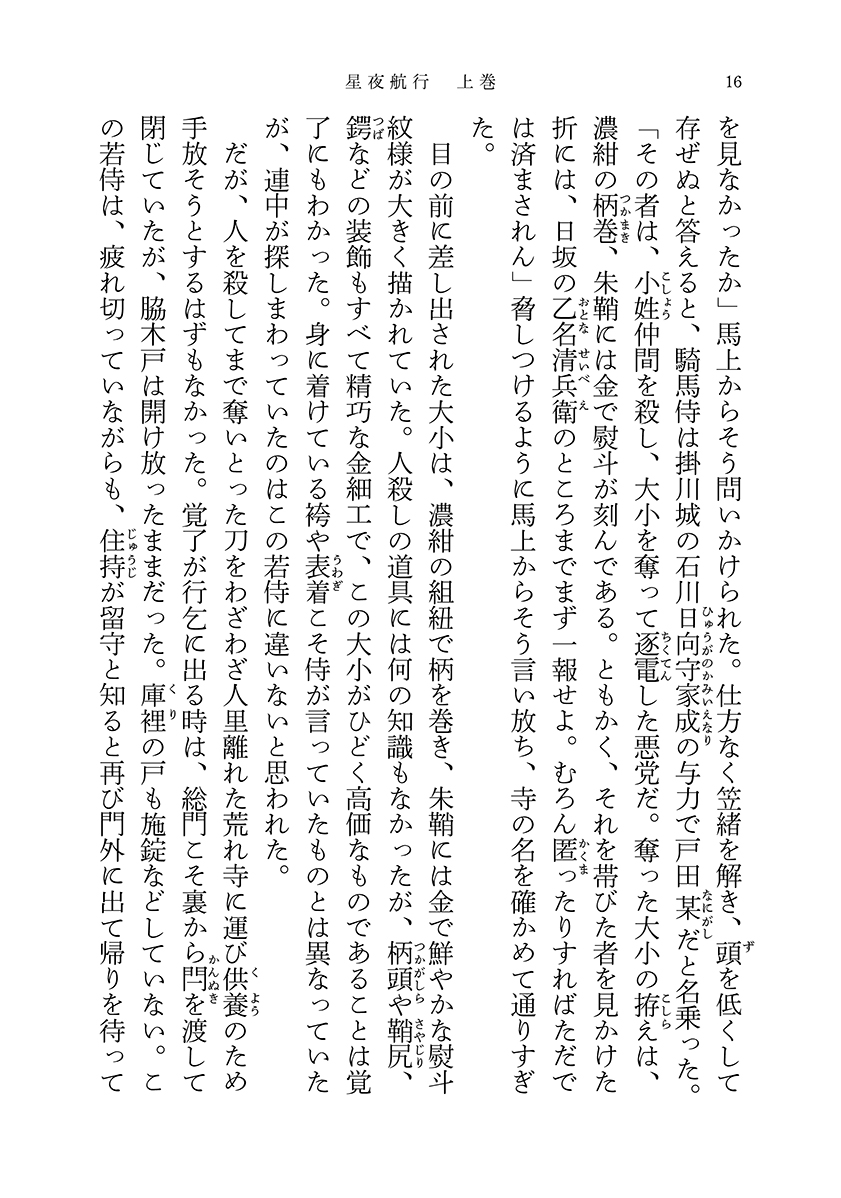 星夜航行　上巻
16
を見なかったか」馬上からそう問いかけられた。仕方なく笠緒を解き、頭を低くして
存ぜぬと答えると、騎馬侍は掛川城の石川日向守家成の与力で戸田某だと名乗った。
「その者は、小姓仲間を殺し、大小を奪って逐電した悪党だ。奪った大小の拵えは、
濃紺の柄巻、朱鞘には金で熨斗が刻んである。ともかく、それを帯びた者を見かけた
折には、日坂の乙名清兵衛のところまでまず一報せよ。むろん匿ったりすればただで
は済まされん」脅しつけるように馬上からそう言い放ち、寺の名を確かめて通りすぎ
た。
　目の前に差し出された大小は、濃紺の組紐で柄を巻き、朱鞘には金で鮮やかな熨斗
紋様が大きく描かれていた。人殺しの道具には何の知識もなかったが、柄頭や鞘尻、
鍔などの装飾もすべて精巧な金細工で、この大小がひどく高価なものであることは覚
了にもわかった。身に着けている袴や表着こそ侍が言っていたものとは異なっていた
が、連中が探しまわっていたのはこの若侍に違いないと思われた。
　だが、人を殺してまで奪いとった刀をわざわざ人里離れた荒れ寺に運び供養のため
手放そうとするはずもなかった。覚了が行乞に出る時は、総門こそ裏から閂を渡して
閉じていたが、脇木戸は開け放ったままだった。庫裡の戸も施錠などしていない。こ
の若侍は、疲れ切っていながらも、住持が留守と知ると再び門外に出て帰りを待って